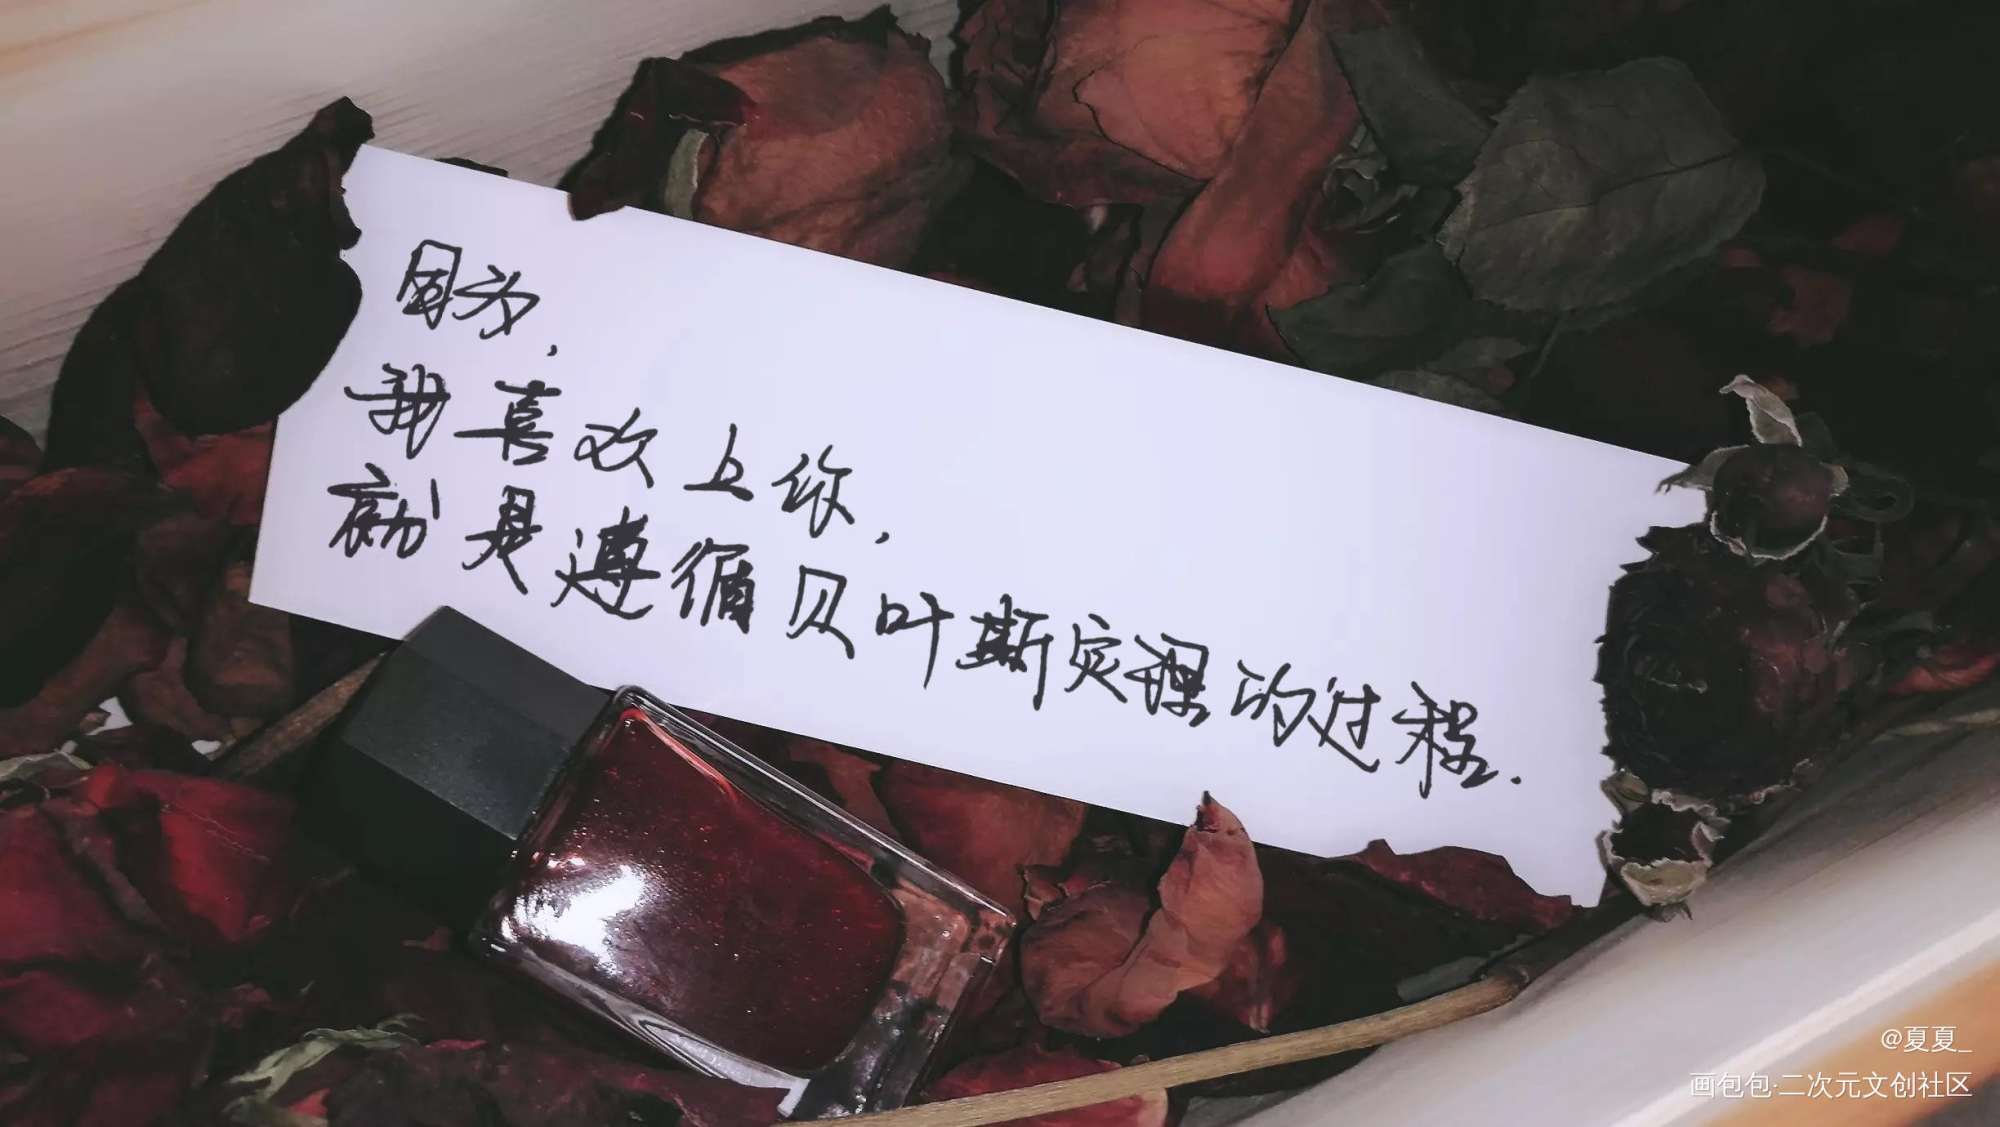 因为，
我喜欢上你，
就是遵循贝叶斯定理的过程.
@夏夏_
画包包·二次元文创社区